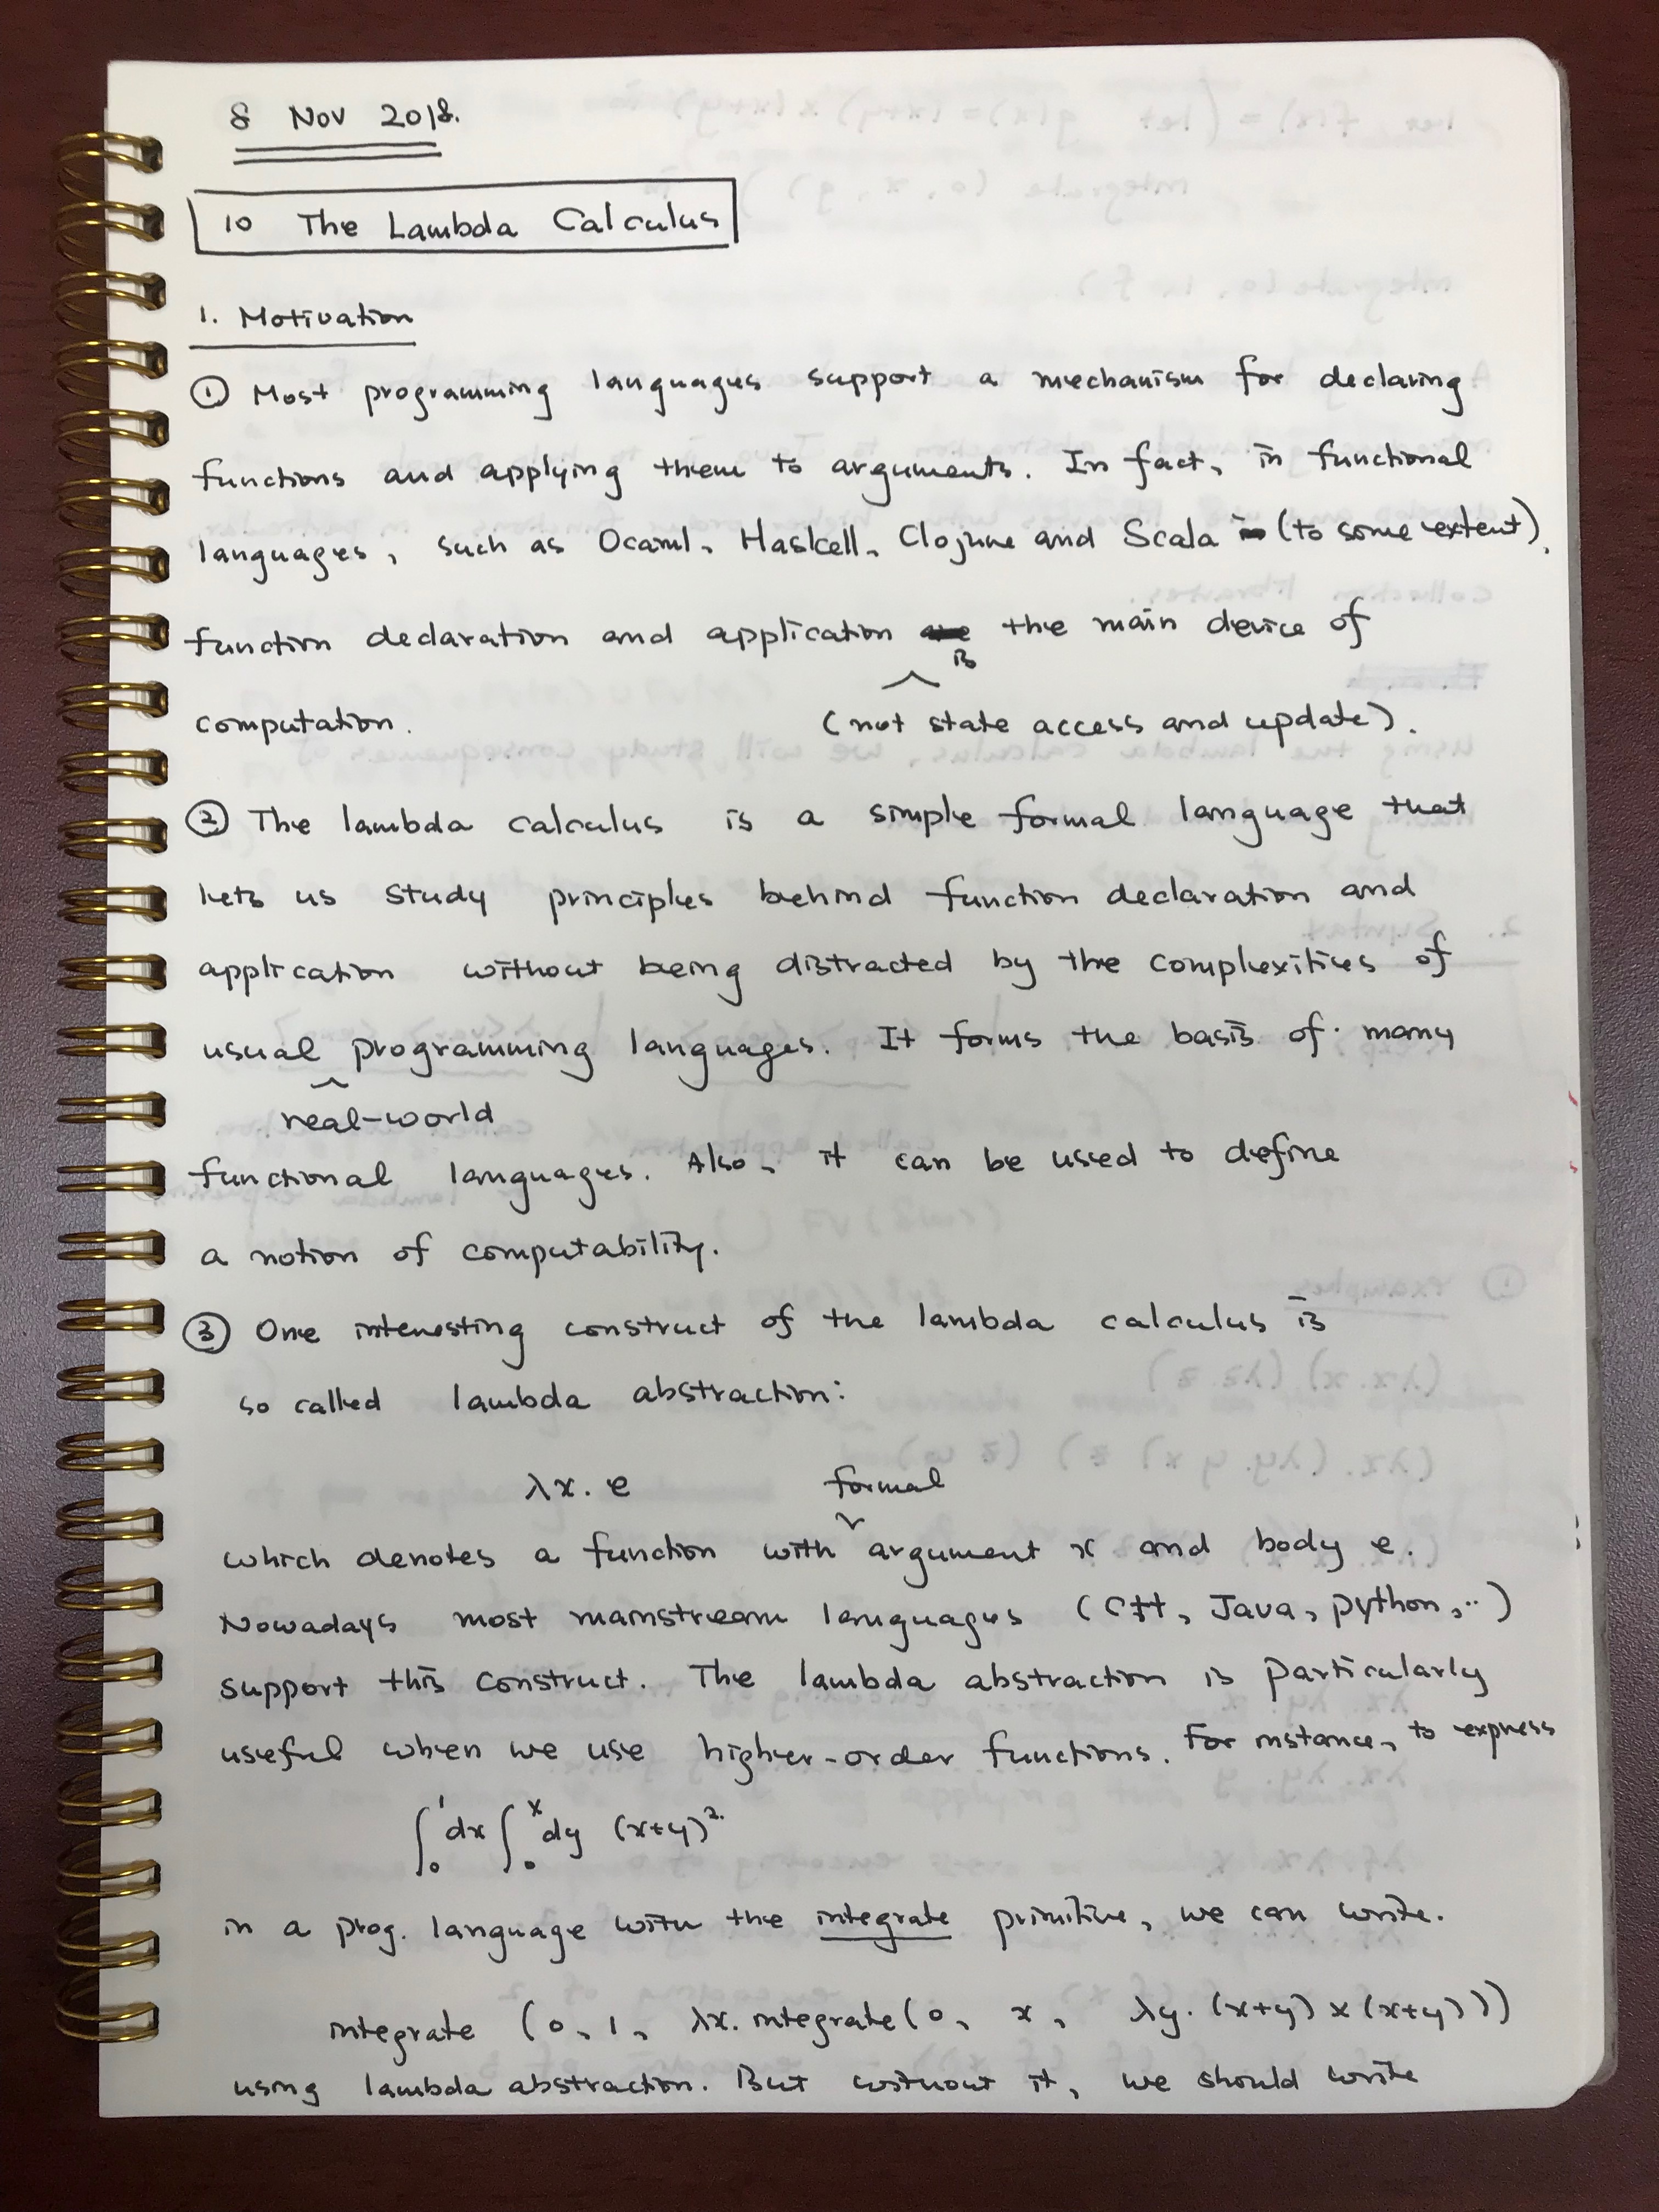 8 Nov 2018.
10 The Lambda Calculus
1. Motivation
① Most programming languages support a mechanism for declaring
functions and applying them to arguments. In fact, in functional
languages, such as Ocaml, Haskell, Clojure and Scala (to some extent),
function declaration and application is the main device of
computation. (not state access and update).
② The lambda calculus is a simple formal language that
lets us study principles behind function declaration and
application without being distracted by the complexities of
usual programming languages. It forms the basis of many
real-world
functional languages. Also, it can be used to define
a notion of computability.
③ One interesting construct of the lambda calculus is
so called lambda abstraction:
λx. e formal
which denotes a function with argument x and body e.
Nowadays most mainstream languages (C++, Java, python, ..)
support this construct. The lambda abstraction is particularly
useful when we use higher-order functions. For instance, to express
∫₀¹dx∫₀ˣdy (x+y)².
in a prog. language with the integrate primitive, we can write.
integrate (0, 1, λx. integrate(0, x, λy. (x+y) × (x+y)))
using lambda abstraction. But without it, we should write